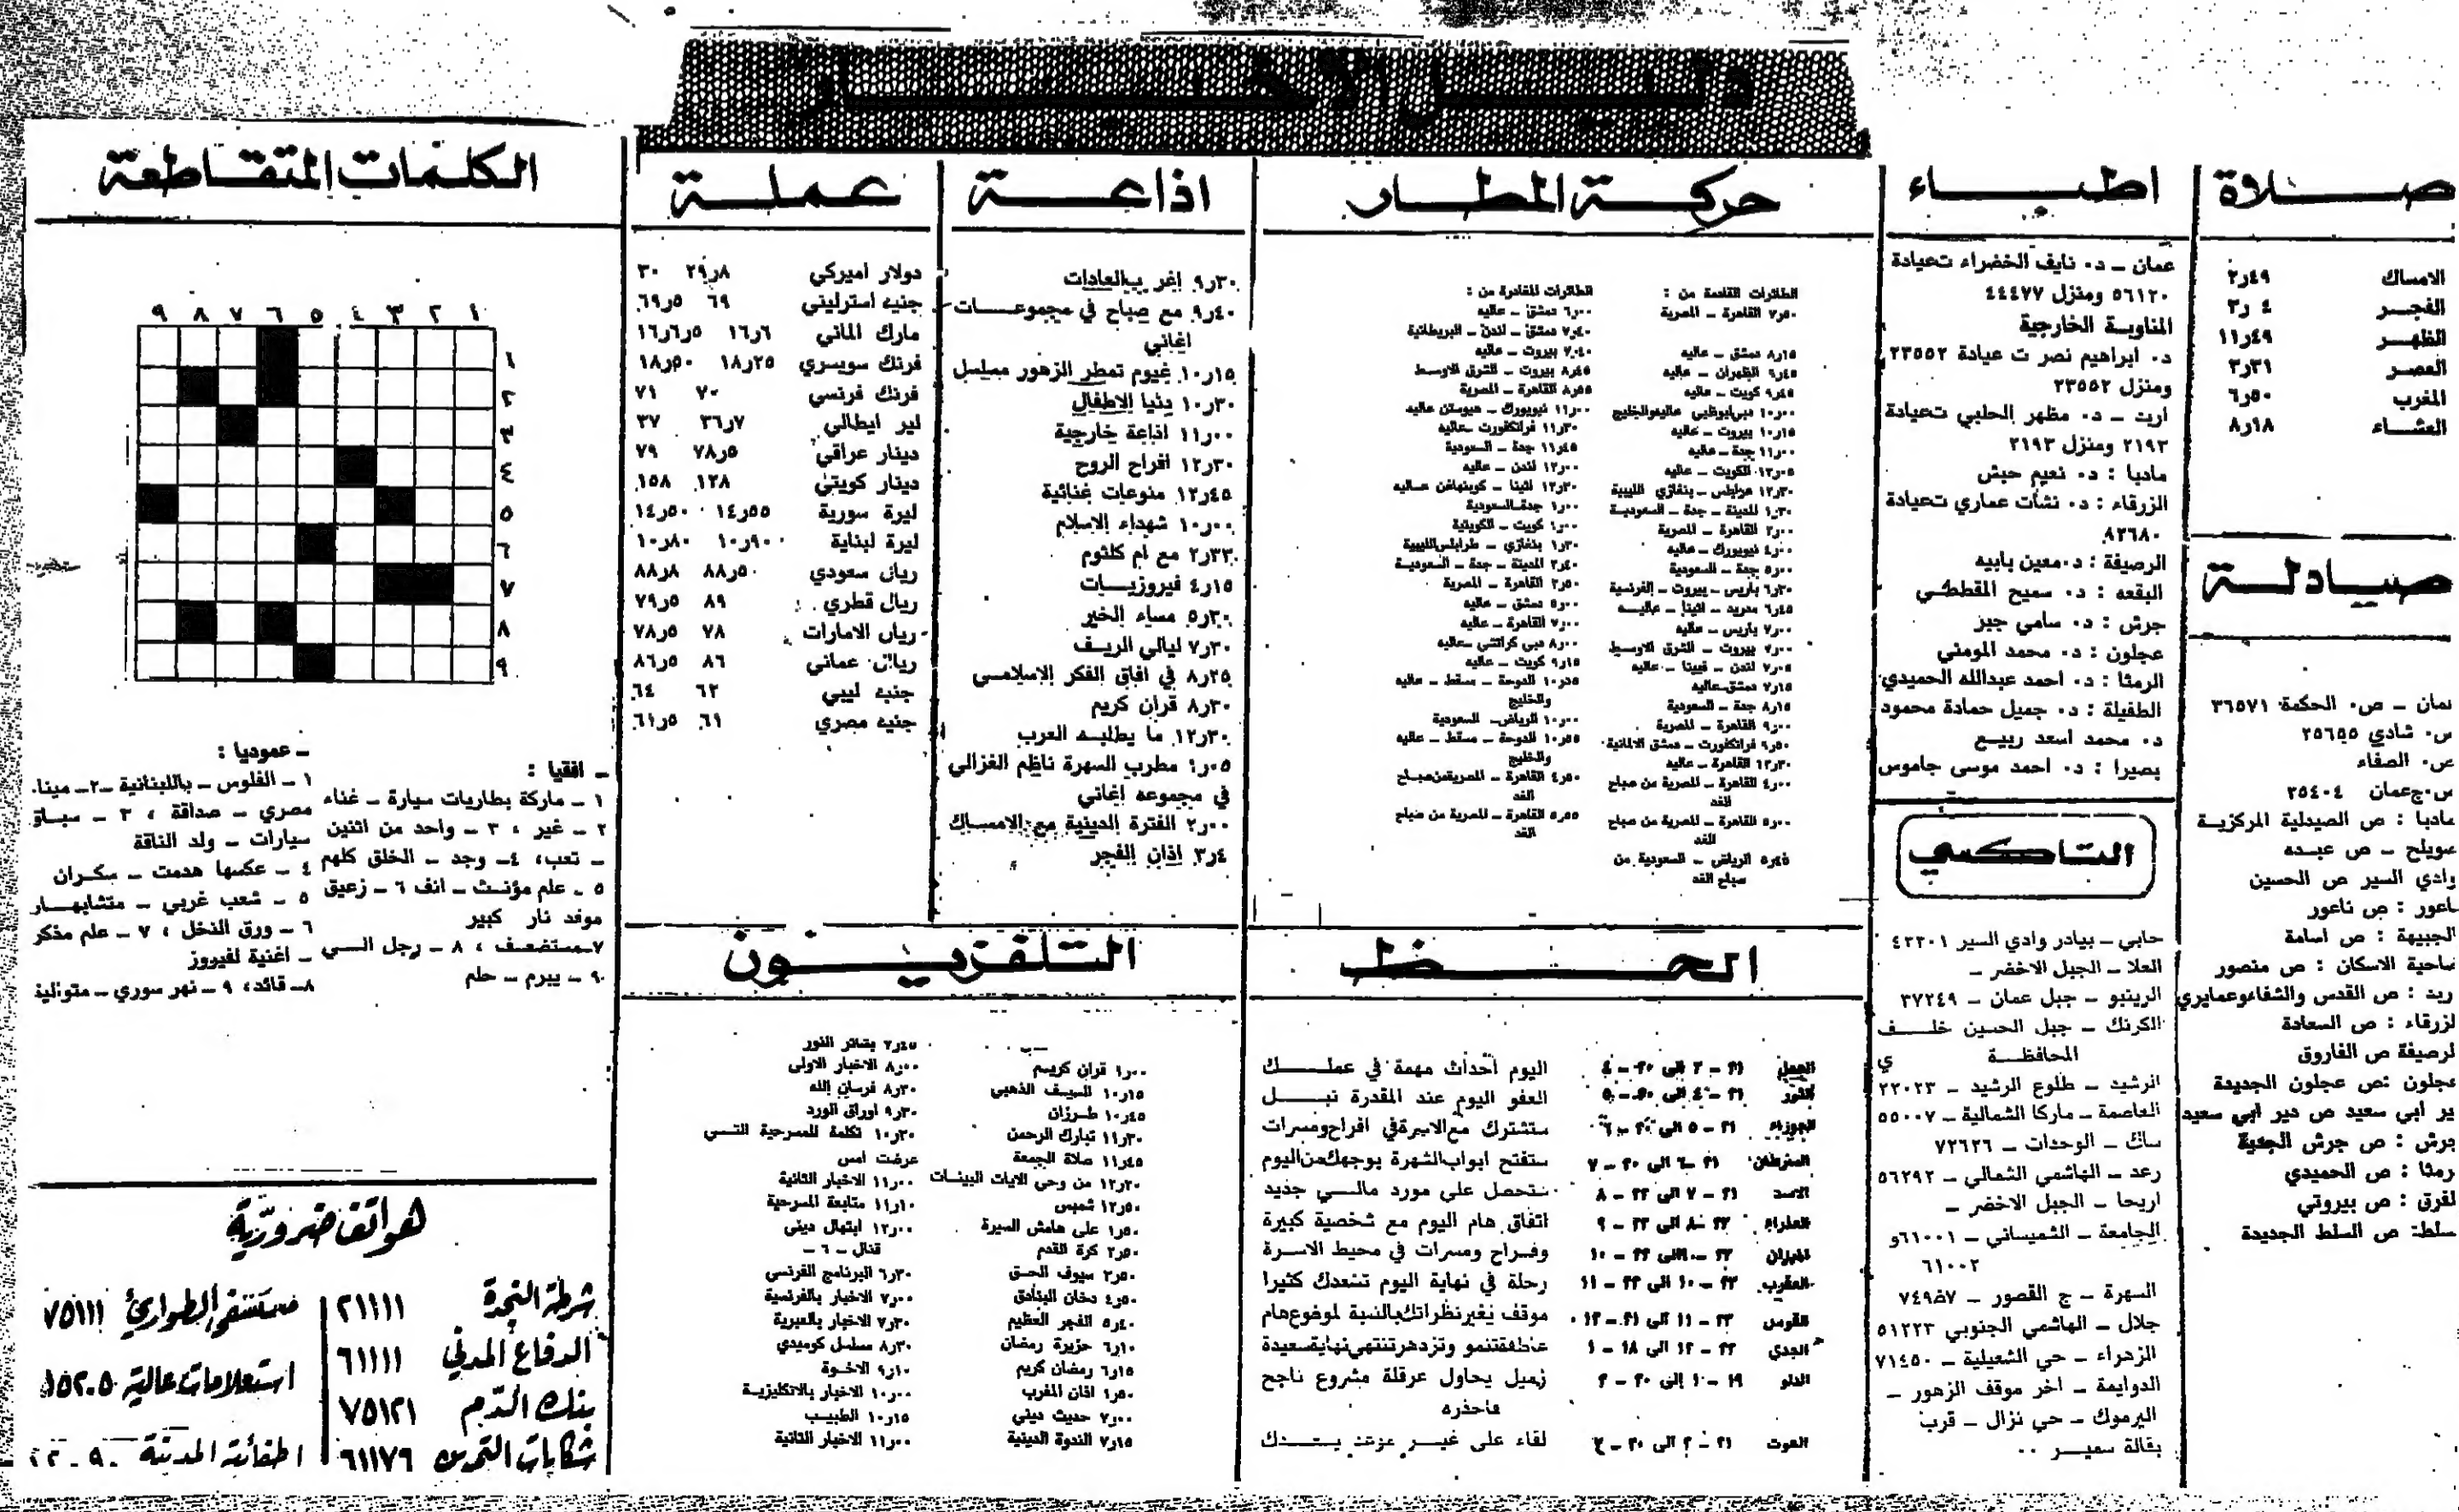 دليل الاخبار
صلاة
الامساك ٤٩ر٢
الفجر ٤ر٣
الظهر ٤٩ر١١
العصر ٣١ر٣
المغرب ٥٠ر٦
العشاء ١٨ر٨
صيادلة
عمان – ص. الحكمة ٣٦٥٧١
ص. شادي ٢٥٦٥٥
ص. الصفاء
ص.ج عمان ٢٥٤٠٤
مادبا : ص الصيدلية المركزية
صويلح – ص عبده
وادي السير ص الحسين
ناعور : ص ناعور
الجبيهة : ص اسامة
ضاحية الاسكان : ص منصور
اربد : ص القدس والشفاء وعمايري
الزرقاء : ص السعادة
الرصيفة ص الفاروق
عجلون :ص عجلون الجديدة
دير ابي سعيد ص دير ابي سعيد
جرش : ص جرش
الرمثا : ص الحميدي
المفرق : ص بيروتي
السلط: ص السلط الجديدة
اطباء
عمان – د. نايف الخضراء ت عيادة
٥٦١٢٠ ومنزل ٤٤٤٧٧
المناوبة الخارجية
د. ابراهيم نصر ت عيادة ٢٣٥٥٢
ومنزل ٢٣٥٥٢
اربد – د. مظهر الحلبي ت عيادة
٢١٩٣ ومنزل ٢١٩٣
مادبا : د. نعيم حبش
الزرقاء : د. نشأت عماري ت عيادة
٨٢٦٨٠
الرصيفة : د. معين بابيه
البقعه : د. سميح المقطشي
جرش : د. سامي جبز
عجلون : د. محمد المومني
الرمثا : د. احمد عبدالله الحميدي
الطفيلة : د. جميل حمادة محمود
د. محمد اسعد ربيع
بصيرا : د. احمد موسى جاموس
التاكسي
حابي – بيادر وادي السير ٤٢٣٠١
العلا – الجبل الاخضر –
الرينبو – جبل عمان – ٣٧٢٤٩
الكرنك – جبل الحسين خلف
المحافظة
الرشيد – طلوع الرشيد – ٢٢٠٢٣
العاصمة – ماركا الشمالية – ٥٥٠٠٧
سات – الوحدات – ٧٢٦٢٦
رعد – الهاشمي الشمالي – ٥٦٢٩٢
اريحا – الجبل الاخضر –
الجامعة – الشميساني – ٦١٠٠١و
٦١٠٠٢
السهرة – ج القصور – ٧٤٩٥٧
جلال – الهاشمي الجنوبي ٥١٢٢٣
الزهراء – حي الشعيلية – ٧١٤٥٠
الدوايمة – اخر موقف الزهور –
اليرموك – حي نزال – قرب
بقالة سمير ..
حركة المطار
الطائرات القادمة من :
٥٠ر٧ القاهرة – المصرية
١٥ر٨ دمشق – عاليه
٤٥ر٩ الظهران – عاليه
٤٥ر٩ كويت – عاليه
٠٠ر١٠ دبي ابوظبي عاليه والخليج
١٥ر١٠ بيروت – عاليه
٠٠ر١١ جدة – عاليه
٠٥ر١٢ الكويت – عاليه
٣٠ر١٢ طرابلس – بنغازي الليبية
٣٠ر١ المدينة – جدة – السعودية
٠٠ر٣ القاهرة – المصرية
٠٠ر٤ نيويورك – عاليه
٠٠ر٥ جدة – السعودية
٣٠ر٦ باريس – بيروت – الفرنسية
٤٥ر٦ مدريد – اثينا – عاليه
٠٠ر٧ باريس – عاليه
٠٠ر٧ بيروت – الشرق الاوسط
٠٥ر٧ لندن – فيينا – عاليه
١٥ر٧ دمشق – عاليه
١٥ر٨ جدة – السعودية
٠٠ر٩ القاهرة – المصرية
٥٠ر٩ فرانكفورت – دمشق الالمانية
٣٠ر١٢ القاهرة – عاليه
٠٠ر٤ القاهرة – المصرية من صباح
الغد
٠٠ر٥ القاهرة – المصرية من صباح
الغد
الرياض – السعودية من
صباح الغد
الطائرات المغادرة من :
٠٠ر٦ دمشق – عاليه
٤٠ر٧ دمشق – لندن – البريطانية
٤٠ر٧ بيروت – عاليه
٤٥ر٨ بيروت – الشرق الاوسط
٥٥ر٨ القاهرة – المصرية
٠٠ر١١ نيويورك – هيوستن عاليه
٣٠ر١١ فرانكفورت – عاليه
٤٥ر١١ جدة – السعودية
٠٠ر١٢ لندن – عاليه
٣٠ر١٢ اثينا – كوبنهاغن عاليه
٠٠ر١ جدة السعودية
٠٠ر١ كويت – الكويتية
٣٠ر١ بنغازي – طرابلس الليبية
٤٠ر٢ المدينة – جدة – السعودية
٥٠ر٣ القاهرة – المصرية
٠٠ر٥ دمشق – عاليه
٠٠ر٧ القاهرة – عاليه
٠٠ر٨ دبي كراتشي – عاليه
١٥ر٩ كويت – عاليه
الدوحة – مسقط – عاليه
والخليج
٠٠ر١٠ الرياض – السعودية
٥٥ر١٠ الدوحة – مسقط – عاليه
والخليج
٥٠ر٤ القاهرة – المصرية من صباح
الغد
٥٥ر٥ القاهرة – المصرية من صباح
الغد
الحظ
الحمل ٢١ – ٣ الى ٢٠ – ٤ اليوم أحداث مهمة في عملك
الثور ٢١ – ٤ الى ٢٠ – ٥ العفو اليوم عند المقدرة نبل
الجوزاء ٢١ – ٥ الى ٢٠ – ٦ ستشترك مع الاسرة في افراح ومسرات
السرطان ٢١ – ٦ الى ٢٠ – ٧ ستفتح ابواب الشهرة بوجهك من اليوم
الاسد ٢١ – ٧ الى ٢٢ – ٨ ستحصل على مورد مالي جديد
العذراء ٢٣ – ٨ الى ٢٢ – ٩ اتفاق هام اليوم مع شخصية كبيرة
الميزان ٢٣ – ٩ الى ٢٢ – ١٠ وفراح ومسرات في محيط الاسرة
العقرب ٢٣ – ١٠ الى ٢٢ – ١١ رحلة في نهاية اليوم تسعدك كثيرا
القوس ٢٣ – ١١ الى ٢١ – ١٢ موقف يغير نظراتك بالنسبة لموضوع هام
الجدي ٢٢ – ١٢ الى ١٨ – ١ عاطفة تنمو وتزدهر تنتهي نهاية سعيدة
الدلو ١٩ – ١ الى ٢٠ – ٢ زميل يحاول عرقلة مشروع ناجح
فاحذره
الحوت ٢١ – ٢ الى ٢٠ – ٣ لقاء على غير موعد يسعدك
اذاعة
٣٠ر٩ اغرب العادات
٤٠ر٩ مع صباح في مجموعات
اغاني
١٥ر١٠ غيوم تمطر الزهور مسلسل
٣٠ر١٠ دنيا الاطفال
٠٠ر١١ اذاعة خارجية
٣٠ر١٢ افراح الروح
٤٥ر١٢ منوعات غنائية
٠٠ر١٠ شهداء الاسلام
٣٣ر٢ مع ام كلثوم
١٥ر٤ فيروزيات
٣٠ر٥ مساء الخير
٣٠ر٧ ليالي الريف
٢٥ر٨ في افاق الفكر الاسلامي
٣٠ر٨ قران كريم
٣٠ر١٢ ما يطلبه العرب
٠٥ر١ مطرب السهرة ناظم الغزالي
في مجموعه اغاني
٠٠ر٢ الفترة الدينية مع الامساك
٤ر٣ اذان الفجر
عملة
دولار اميركي ٨ر٢٩ ٣٠
جنيه استرليني ٦٩ ٥ر٦٩
مارك الماني ٦ر١٦ ٥ر٦ر١٦
فرنك سويسري ٢٥ر١٨ ٥٠ر١٨
فرنك فرنسي ٧٠ ٧١
لير ايطالي ٧ر٣٦ ٣٧
دينار عراقي ٥ر٧٨ ٧٩
دينار كويتي ١٢٨ ١٥٨
ليرة سورية ٥٥ر١٤ ٥٠ر١٤
ليرة لبناية ٩٠ر١٠ ٨٠ر١٠
ريال سعودي ٥٠ر٨٨ ٨ر٨٨
ريال قطري ٨٩ ٥ر٧٩
ريال الامارات ٧٨ ٥ر٧٨
ريال عماني ٨٦ ٥ر٨٦
جنيه ليبي ٦٢ ٦٤
جنيه مصري ٦١ ٥ر٦١
التلفزيون
٠٠ر١ قران كريم
١٥ر١٠ السيف الذهبي
٤٥ر١٠ طرزان
٣٠ر١١ تبارك الرحمن
٤٥ر١١ صلاة الجمعة
٣٠ر١٢ من وحي الايات البينات
٥٠ر١٢ شمبس
٥٠ر١ على هامش السيرة
٥٠ر٢ كرة القدم
٥٠ر٣ سيوف الحق
٥٠ر٤ دخان البنادق
٤٠ر٥ الفجر العظيم
١٠ر٦ حزيرة رمضان
١٥ر٦ رمضان كريم
٥٠ر١ اذان المغرب
٠٠ر٧ حديث ديني
١٥ر٧ الندوة الدينية
٤٥ر٧ بشائر النور
٠٠ر٨ الاخبار الاولى
٣٠ر٨ فرسان الله
٣٠ر٩ اوراق الورد
٣٠ر١٠ تكلمة المسرحية التي
عرضت امس
٠٠ر١١ الاخبار الثانية
١٠ر١١ متابعة المسرحية
٠٠ر١٢ ابتهال ديني
قنال – ٦ –
٣٠ر٦ البرنامج الفرنسي
٠٠ر٧ الاخبار بالفرنسية
٣٠ر٧ الاخبار بالعبرية
٣٠ر٨ مسلسل كوميدي
١٠ر٩ الاخوة
٠٠ر١٠ الاخبار بالانكليزية
١٥ر١٠ الطبيب
٠٠ر١١ الاخبار الثانية
الكلمات المتقاطعة
١ ٢ ٣ ٤ ٥ ٦ ٧ ٨ ٩
١
٢
٣
٤
٥
٦
٧
٨
٩
– افقيا :
١ – ماركة بطاريات سيارة – غناء
٢ – غير ، ٣ – واحد من اثنين
– تعب، ٤– وجد – الخلق كلهم
٥ – علم مؤنث – انف ٦ – زعيق
موقد نار كبير
٧– مستضعف ، ٨ – رجل السي
٩ – يبرم – حلم
– عموديا :
١ – الفلوس – باللبنانية –٢– ميناء
مصري – صداقة ، ٣ – سباق
سيارات – ولد الناقة
٤ – عكسها هدمت – سكران
٥ – شعب غربي – متشابهان
٦ – ورق النخل ، ٧ – علم مذكر
– اغنية لفيروز
٨– قائد، ٩ – نهر سوري – متوالية
هواتف ضرورية
شرطة النجدة ٢١١١١
الدفاع المدني ٦١١١١
بنك الدم ٧٥١٢١
شكايات التموين ٦١١٧٦
مستشفى الطوارئ ٧٥١١١
استعلامات عالية
اطفائية المدينة ٢٢٠٩٠